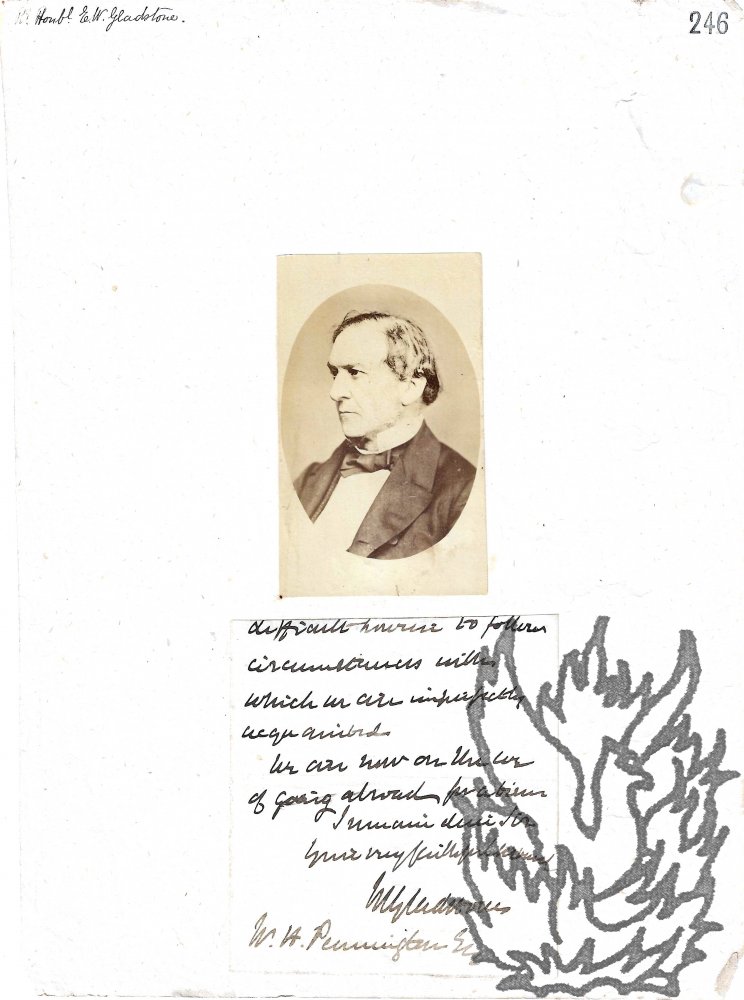 Rt. Honbl. E. W. Gladstone.
246
difficult however to follow
circumstances with
which we are imperfectly
acquainted.
We are now on the eve
of going abroad for a time
I remain dear Sir
Your very faithful
WGladstone
W. H. Pennington